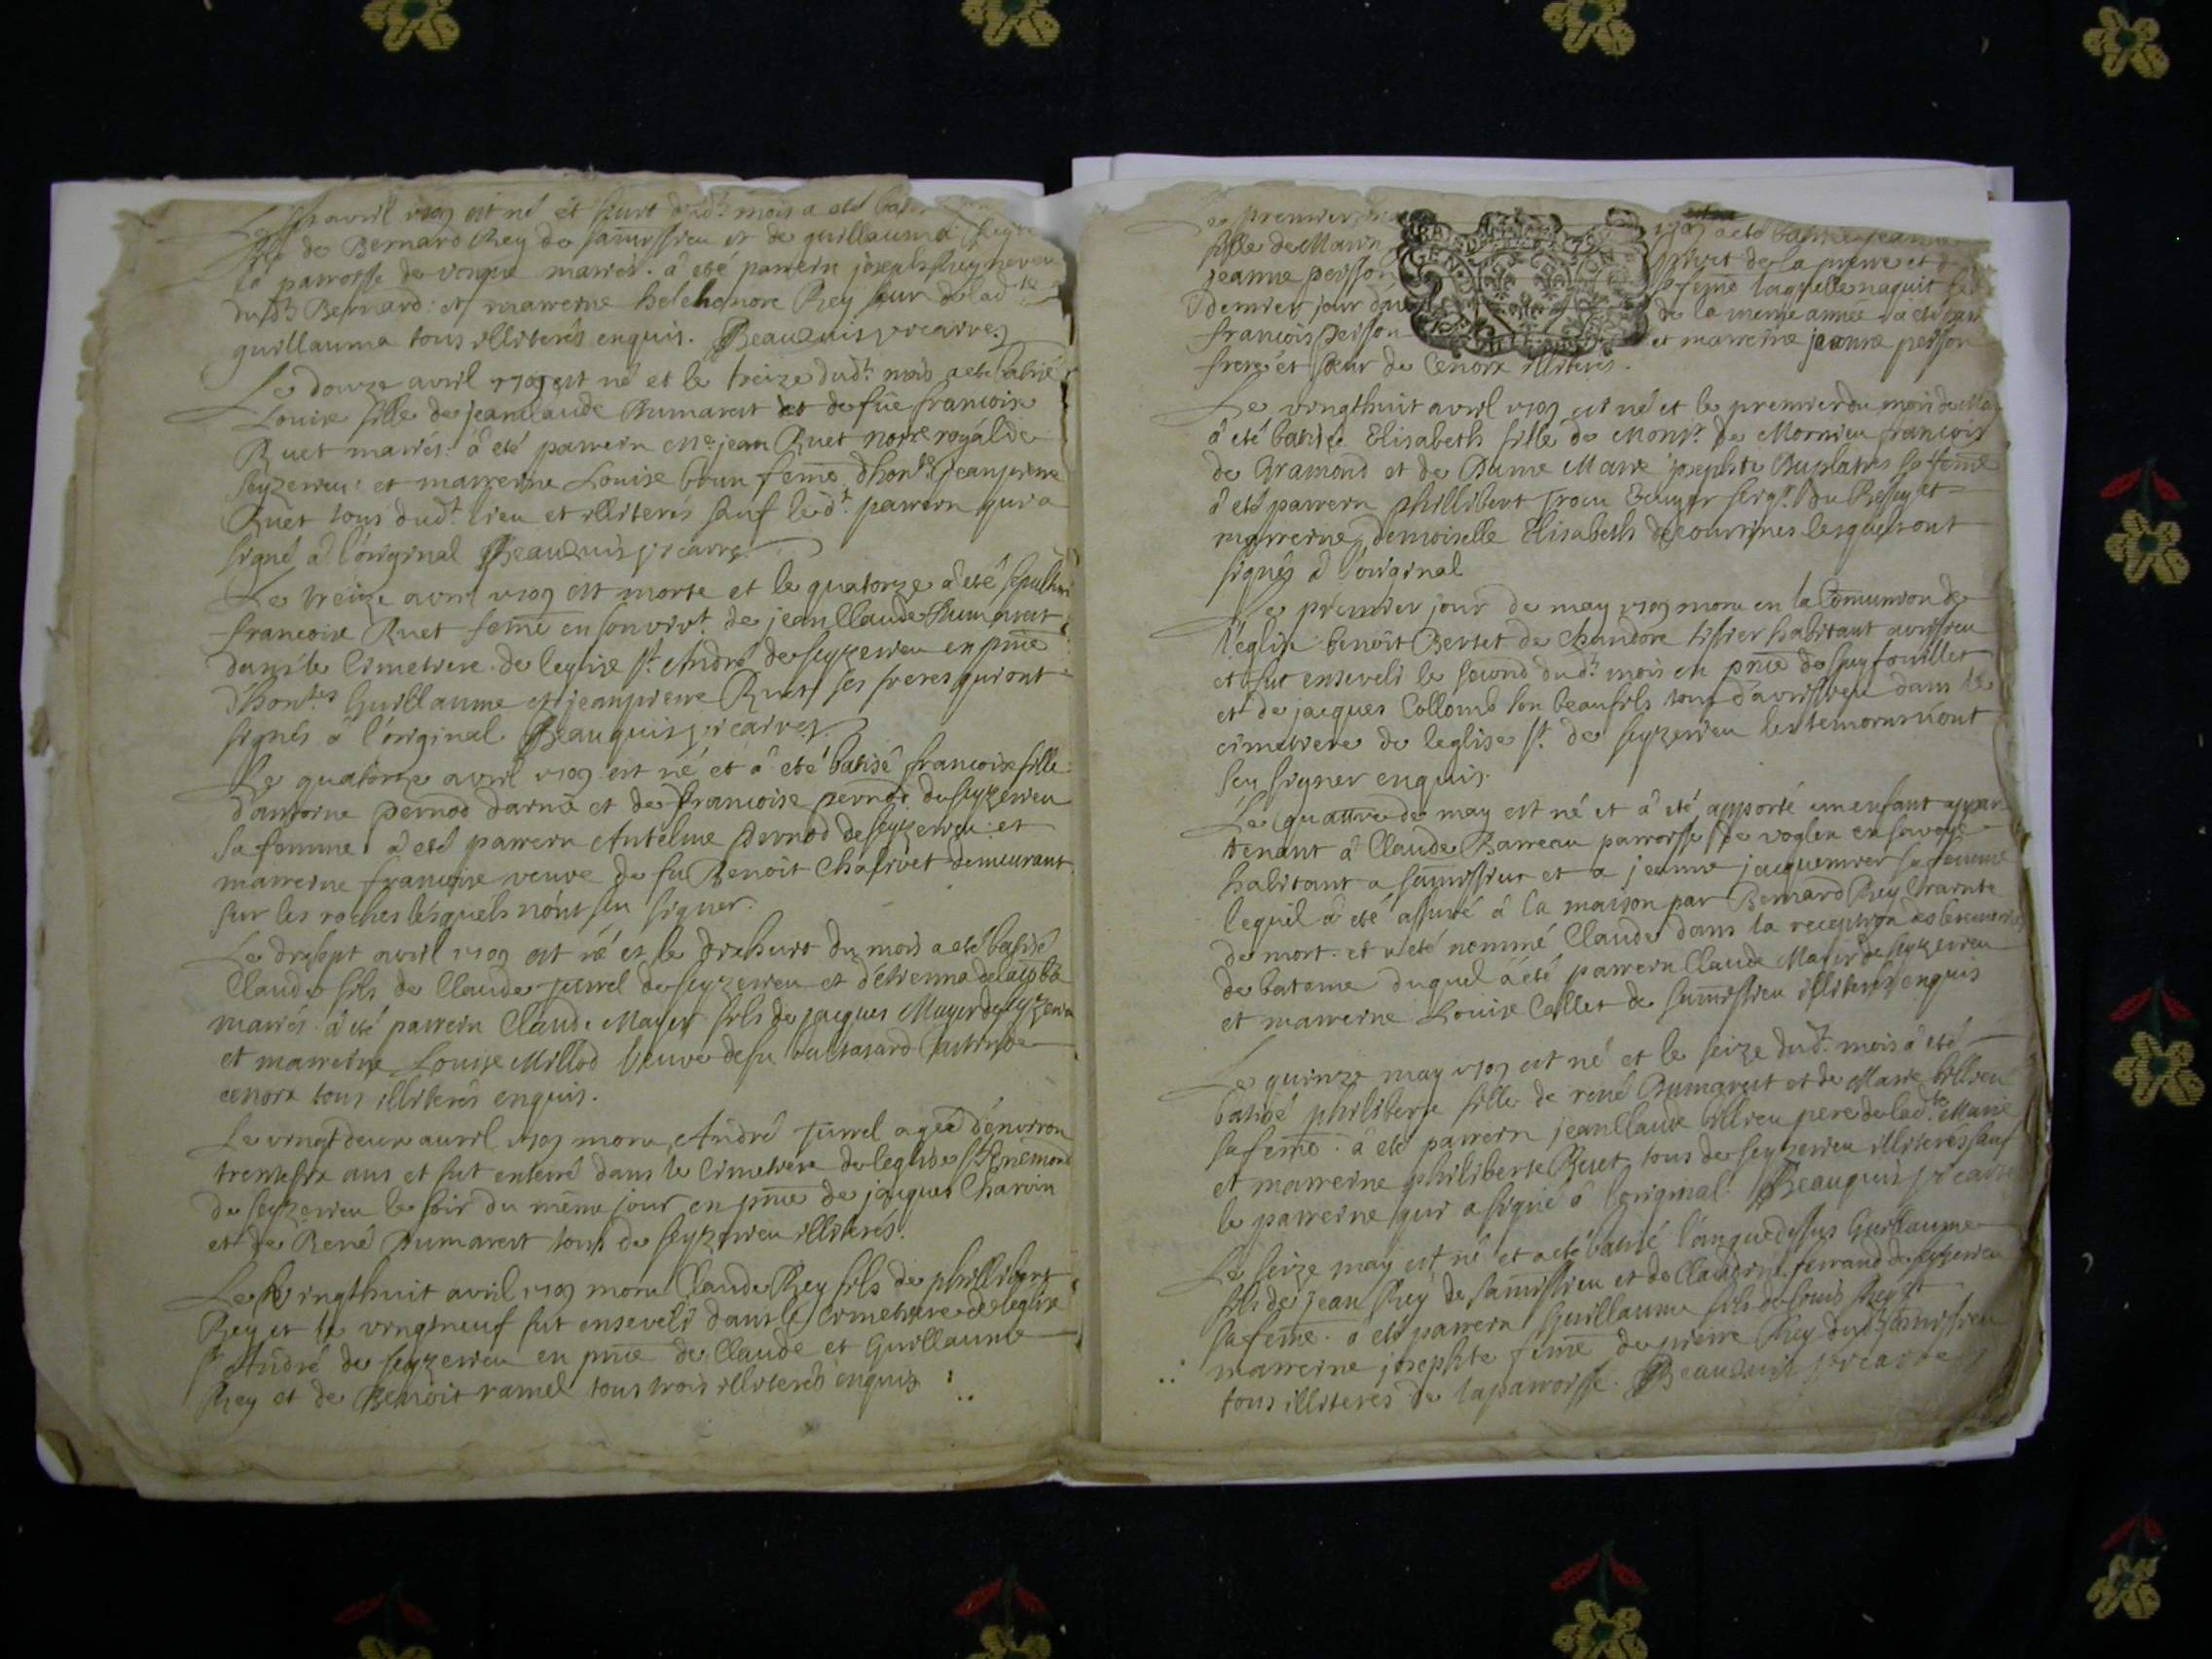 avril 1709 est né et huit dud.t mois a eté
de Bernard Rey de samissieu et de guillauma
la parroisse de mariés. a eté parrein joseph Rey neveu
dud.t Bernard: et marreine Rey seur de lad.te
guillauma tous illiterés enquis. Beauquis vicaire
Le douze avril 1709 est né et le treize dud.t mois a eté batisé
Louise fille de jeanclaude Dumarest et de fue francoise
Ruet mariés: a eté parrein M.e jean Ruet no.re royal de
seyzerieu: et marreine Louise brun feme d'hon.te jeanpierre
Ruet tous dud.t lieu et illiterés sauf led.t parrein qui a
signé a l'original Beauquis vicaire
Le treize avril 1709 est morte et le quatorze a eté sepulturé
francoise Ruet feme en son viv.t de jeanClaude Dumarest
dans le Cimetiere de leglise s.t André de seyzerieu en pnce
d'hon.tes Guillaume et jeanpierre Ruet ses freres qui ont
signés a l'original Beauquis vicaire
Le quatorze avril 1709 est né et a eté batisé francoise fille
d'antoine pernod d'arnie et de francoise pernod de seyzerieu
sa femme a eté parrein Antelme pernod de seyzerieu: et
marreine francoise veuve de fu Benoit Charvet demeurant
sur les roches lesquels n'ont seu signer.
Le dixsept avril 1709 est né et le dixhuit du mois a eté batisé
Claude fils de Claude jurrel de seyzerieu et d'étienna
mariés a eté parrein Claude Mayer fils de jacques Mayer de seyzerieu
et marreine Louise Millod veuve de fu baltasard
cenoix tous illiterés enquis.
Le vingtdeux avril 1709 moru André jurrel agée d'environ
trentesix ans et fut enterré dans le Cimetiere de leglise s.t Enemond
de seyzerieu le soir du méme jour en pnce de jacques Charvin
et de René Dumarest tous de seyzerieu illiterés.
Le vingthuit avril 1709 moru Claude Rey fils de phillibert
Rey et le vingtneuf fut enseveli dans le Cimetiere de leglise
s.t André de seyzerieu en pnce de Claude et Guillaume
Rey et de Benoit ramel tous trois illiterés enquis
Le premier 1709 a eté batisée jeanne
fille de Marin de la prene et de
jeanne peisson sa feme laquelle naquit le
dernier jour d'avril de la méme année a eté par
francois peisson et marreine jeanne peisson
frere et seur de Cenoix illiterés.
Le vingthuit avril 1709 est né et le premier du mois de May
a eté batisée Elisabeth fille de Mons.r de Mornieu francois
de Gramond et de Dame Marie josephte Duplatre sa feme
a eté parrein phillibert Ecuyer seig.r du et
marreine demoiselle Elisabeth de lesquels ont
signés a l'original
Le premier jour de may 1709 moru en la Communion de
l'eglise benoit Bertet de Chandore tissier habitant avrissieu
et fut enseveli le second dud.t mois en pnce de Guy fouillet
et de jacques Collomb son beaufils tous d'avrissieu dans le
cimetiere de leglise s.t de seyzerieu les temoins n'ont
seu signer enquis.
Le quattre de may est né et a eté apporté un enfant appar-
tenant a Claude Barreau parroisse de voglen en savoye
habitant a samissieu et a jeanne jacquemier sa femme
lequel a eté assuré a la maison par Bernard Rey crainte
de mort. et a eté nommé Claude dans la reception des ceremonies
de bateme duquel a eté parrein Claude Mayer de seyzerieu
et marreine Louise Collet de samissieu illiterés enquis
Le quinze may 1709 est né et le seize dud.t mois a eté
batisé philiberte fille de rené Dumarest et de Marie billieu
sa feme. a eté parrein jeanClaude billieu pere de lad.te Marie
et marreine philiberte Reset tous de seyzerieu illiterés sauf
le parreine qui a signé a l'original. Beauquis vicaire
Le seize may est né et a eté batisé l'an que dessus Guillaume
fils de jean Rey de samissieu et de Claudine ferrand de seyzerieu
sa feme. a eté parrein Guillaume fils de louis Rey et
marreine josephte feme de pierre Rey dud.t samissieu
tous illiterés de la parroisse. Beauquis vicaire